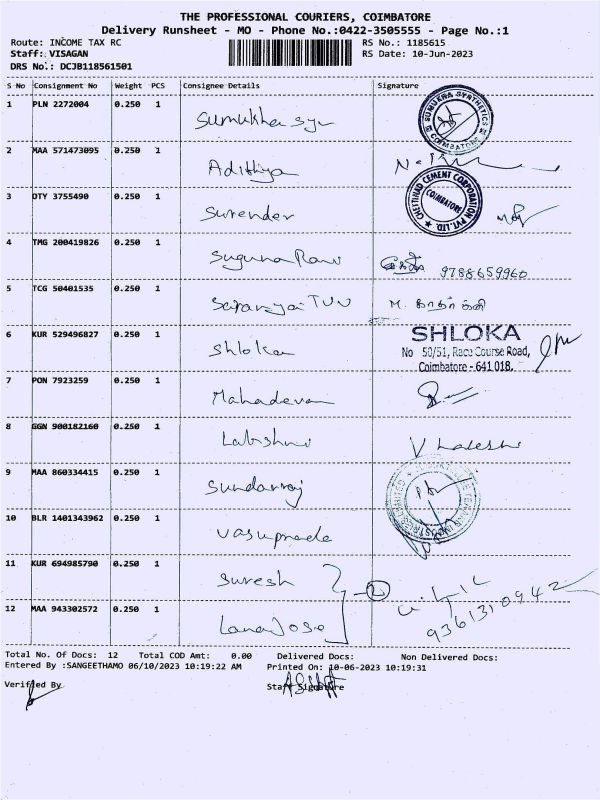 THE PROFESSIONAL COURIERS, COIMBATORE
Delivery Runsheet - MO - Phone No.:0422-3505555 - Page No.:1
Route: INCOME TAX RC RS No.: 1185615
Staff: VISAGAN RS Date: 10-Jun-2023
DRS No.: DCJB118561501
S No Consignment No Weight PCS Consignee Details Signature
1 PLN 2272004 0.250 1 Sumukha syn
SUMUKHA SYNTHETICS COIMBATORE
2 MAA 571473095 0.250 1 Adithya
3 DTY 3755490 0.250 1 Surender
CHETTINAD CEMENT CORPORATION PVT.LTD. COIMBATORE
4 TMG 200419826 0.250 1 Suguna Ram 9788659960
5 TCG 50401535 0.250 1 M.
6 KUR 529496827 0.250 1 Shloka
SHLOKA
No 50/51, Race Course Road,
Coimbatore - 641 018.
7 PON 7923259 0.250 1 Mahadevan
8 GGN 900182160 0.250 1 Lakshmi
9 MAA 860334415 0.250 1 Sundarraj
10 BLR 1401343962 0.250 1 Vasuprada
11 KUR 694985790 0.250 1 Suresh 2
12 MAA 943302572 0.250 1 Lana Jose 9361310942
Total No. Of Docs: 12 Total COD Amt: 0.00 Delivered Docs: Non Delivered Docs:
Entered By :SANGEETHAMO 06/10/2023 10:19:22 AM Printed On: 10-06-2023 10:19:31
Verified By Staff Signature